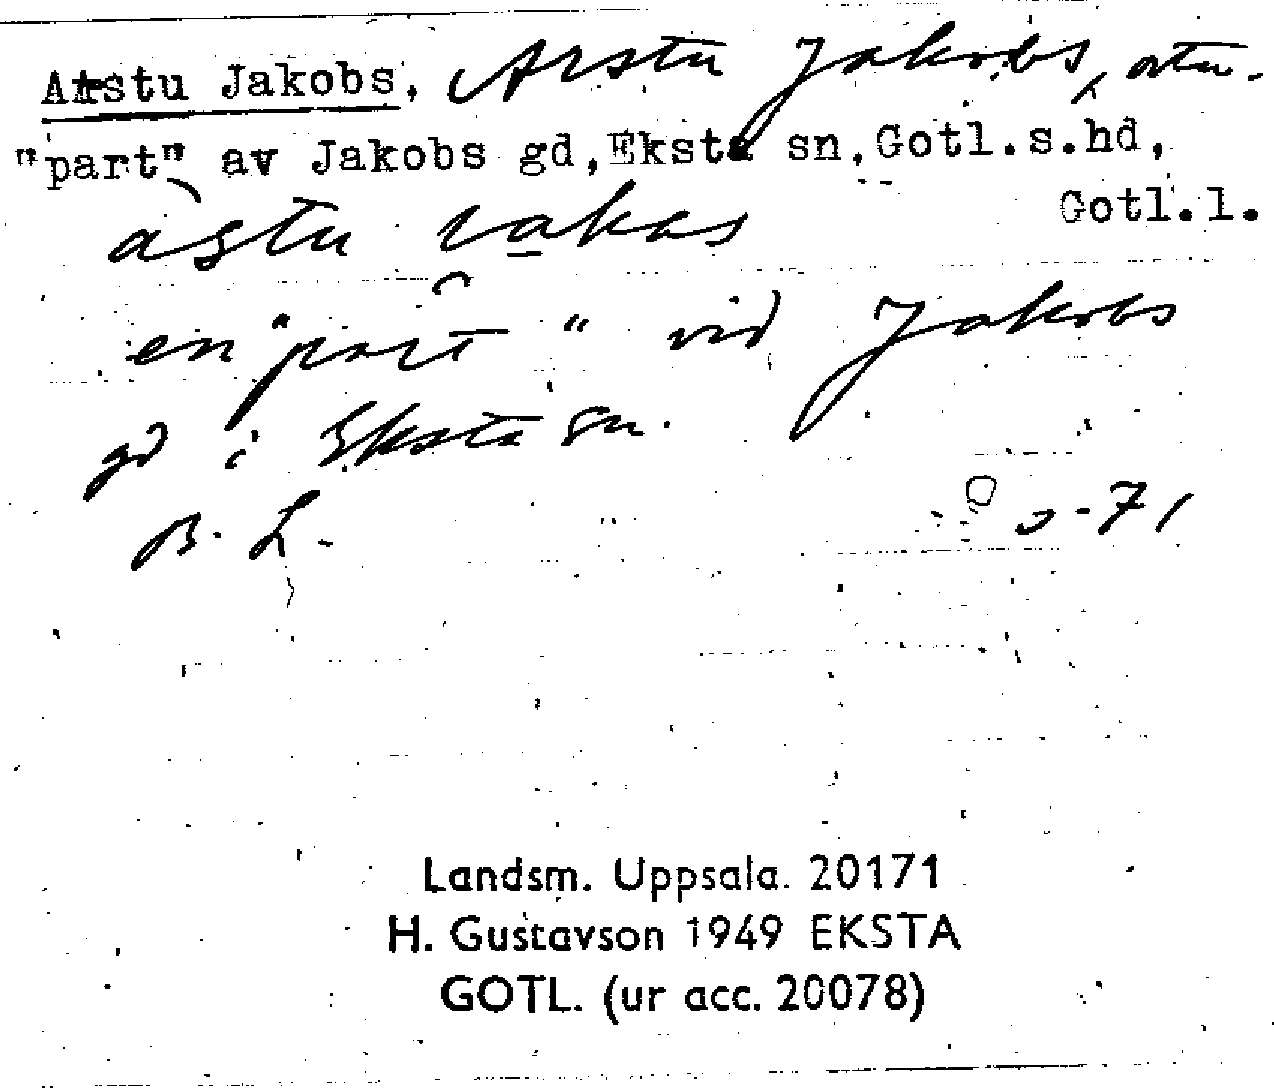 Arstu Jakobs, Arstu Jakobs, ortn.
"part" av Jakobs gd, Eksta sn, Gotl.s.hd,
Gotl.l.
astu jakas
en "part" vid Jakobs
gd i Eksta sn.
B. L. -71
Landsm. Uppsala. 20171
H. Gustavson 1949 EKSTA
GOTL. (ur acc. 20078)